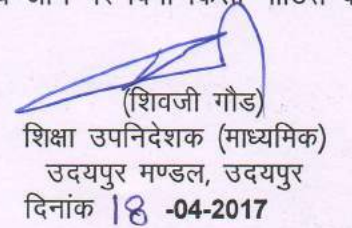 (शिवजी गौड)
शिक्षा उपनिदेशक (माध्यमिक)
उदयपुर मण्डल, उदयपुर
दिनांक 18 -04-2017